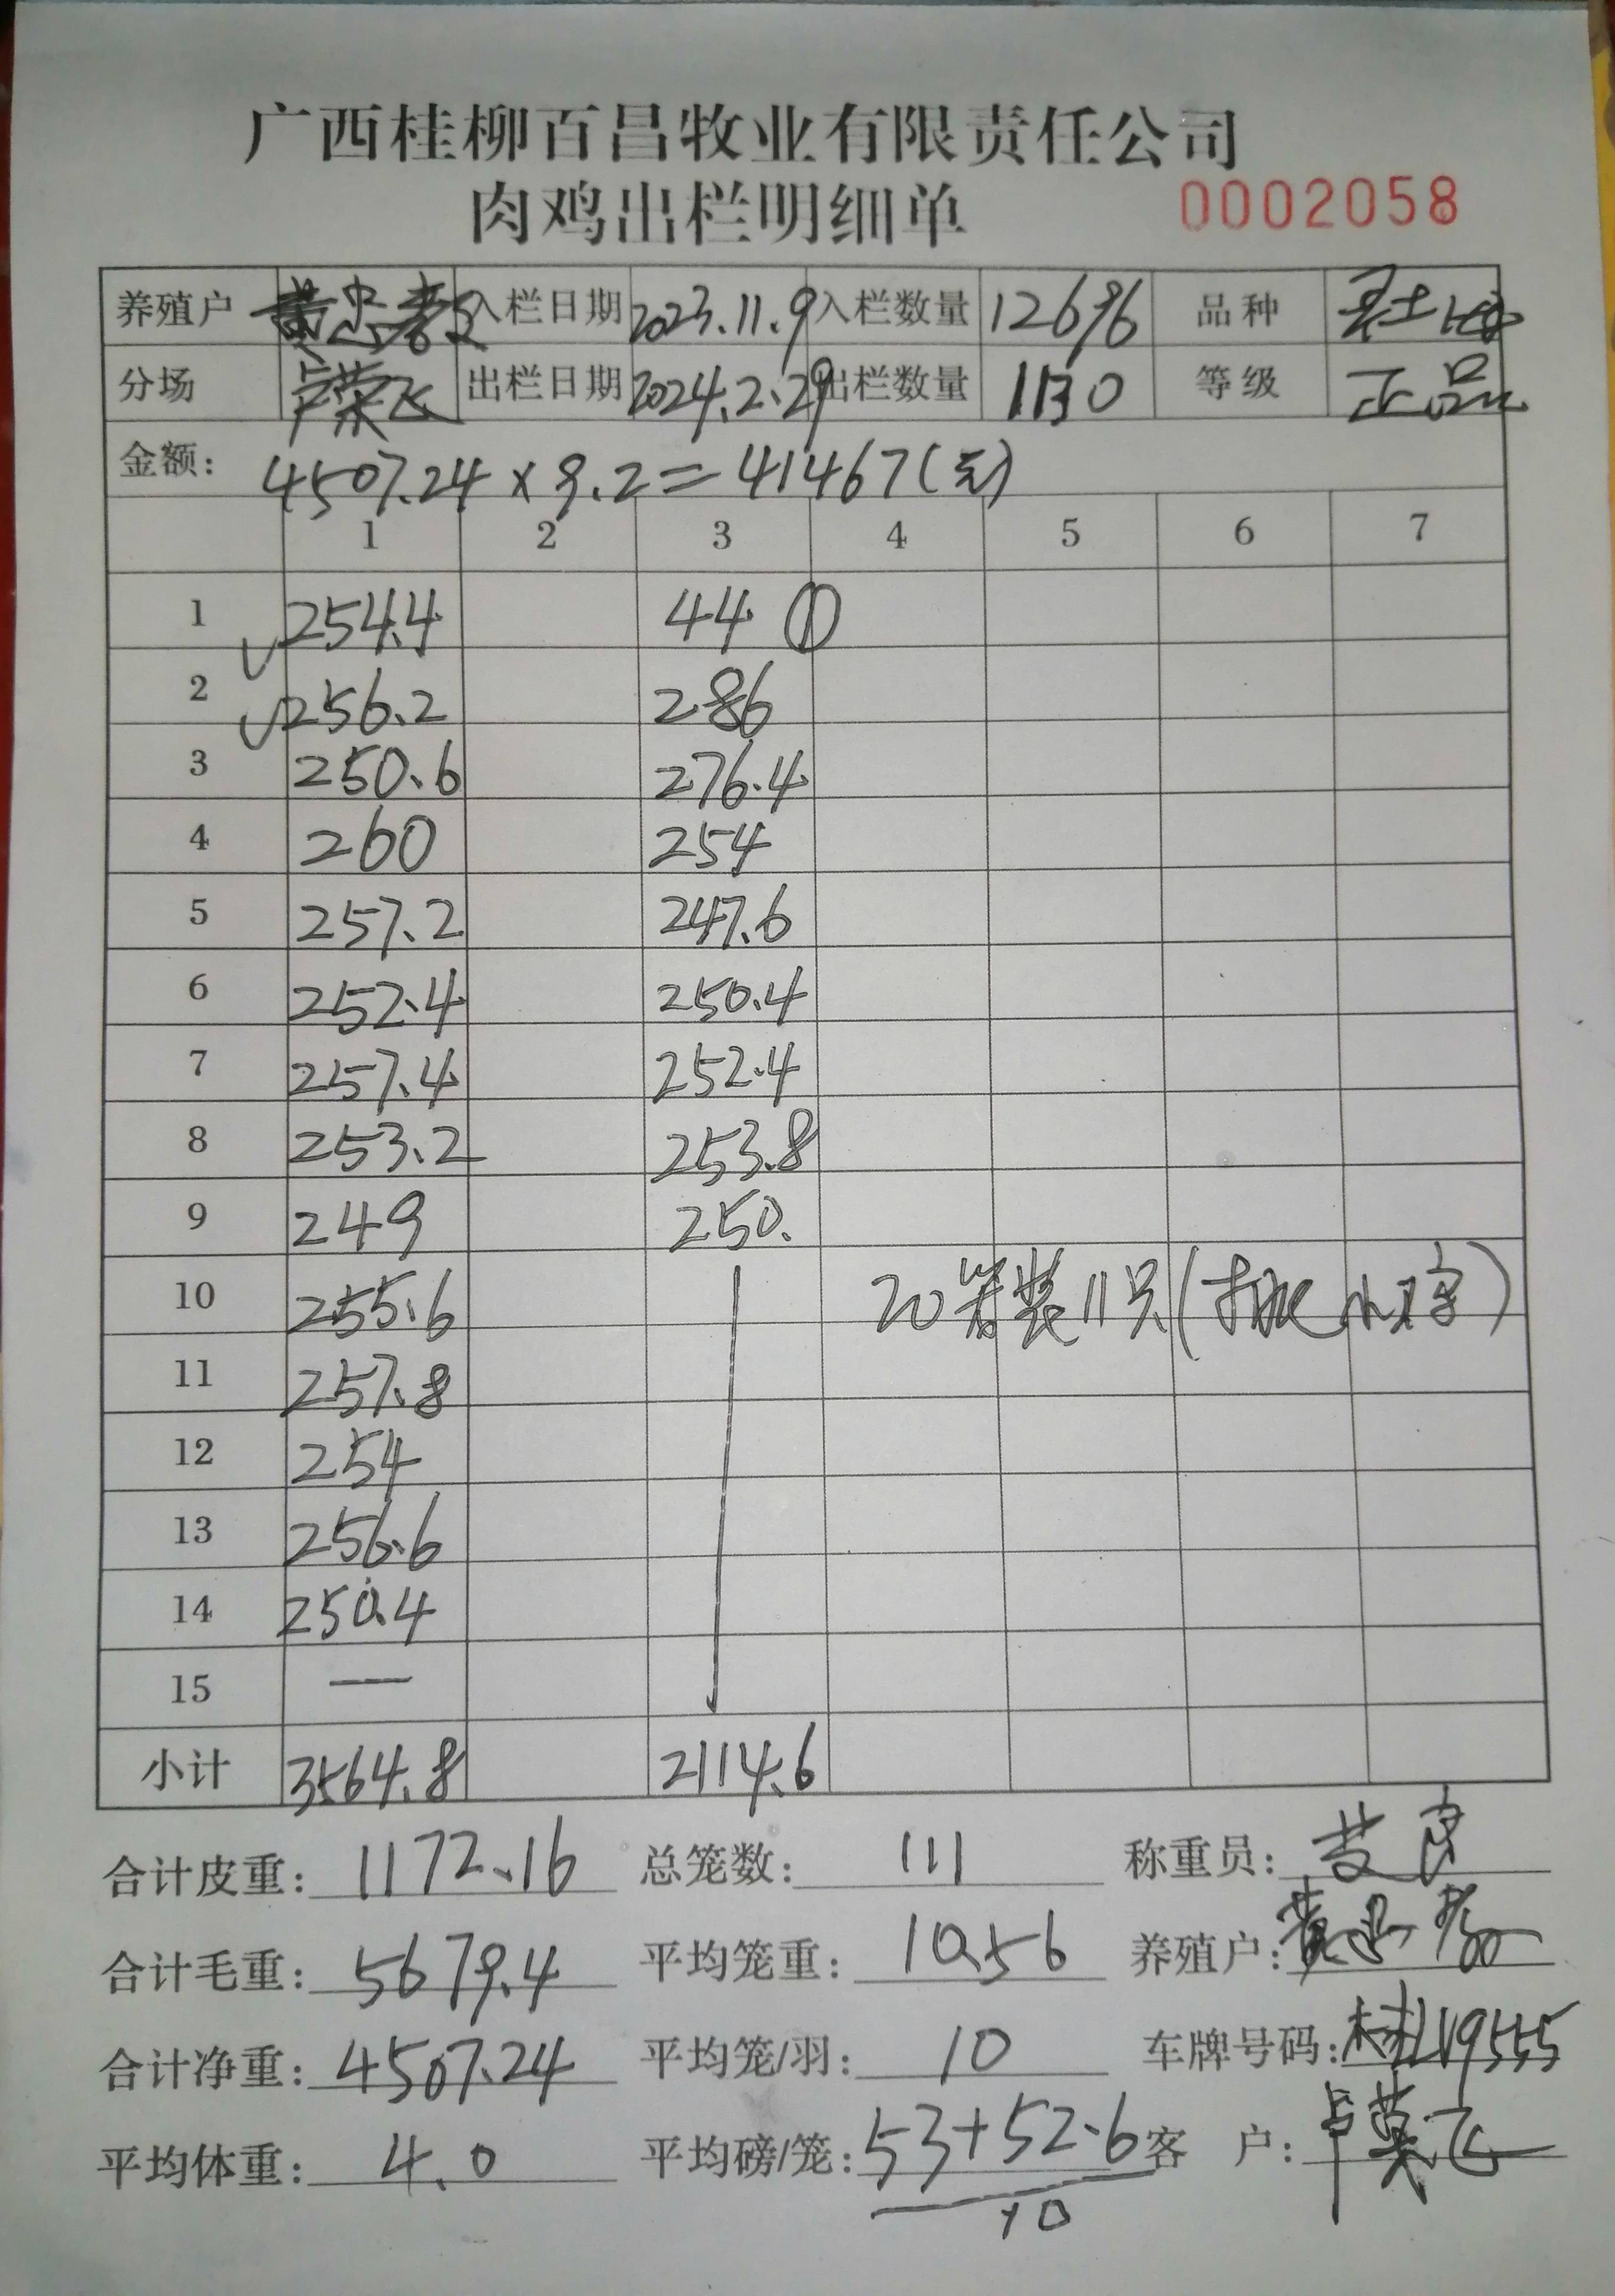 广西桂柳百昌牧业有限责任公司
肉鸡出栏明细单 0002058
养殖户 黄忠 入栏日期 2023.11.9 入栏数量 12696 品种
分场 卢荣飞 出栏日期 2024.2.29 出栏数量 1130 等级 正品
金额: 4507.24×9.2=41467(元)
1 2 3 4 5 6 7
1 254.4 44 ①
2 256.2 286
3 250.6 276.4
4 260 254
5 257.2 247.6
6 252.4 250.4
7 257.4 252.4
8 253.2 253.8
9 249 250.
10 255.6 20笼装11只(
11 257.8
12 254
13 256.6
14 250.4
15 —
小计 3564.8 2114.6
合计皮重: 1172.16 总笼数: 111 称重员:
合计毛重: 5679.4 平均笼重: 10.56 养殖户: 黄忠
合计净重: 4507.24 平均笼/羽: 10 车牌号码: 桂
平均体重: 4.0 平均磅/笼: 53+52.6 客 户: 卢荣飞
10